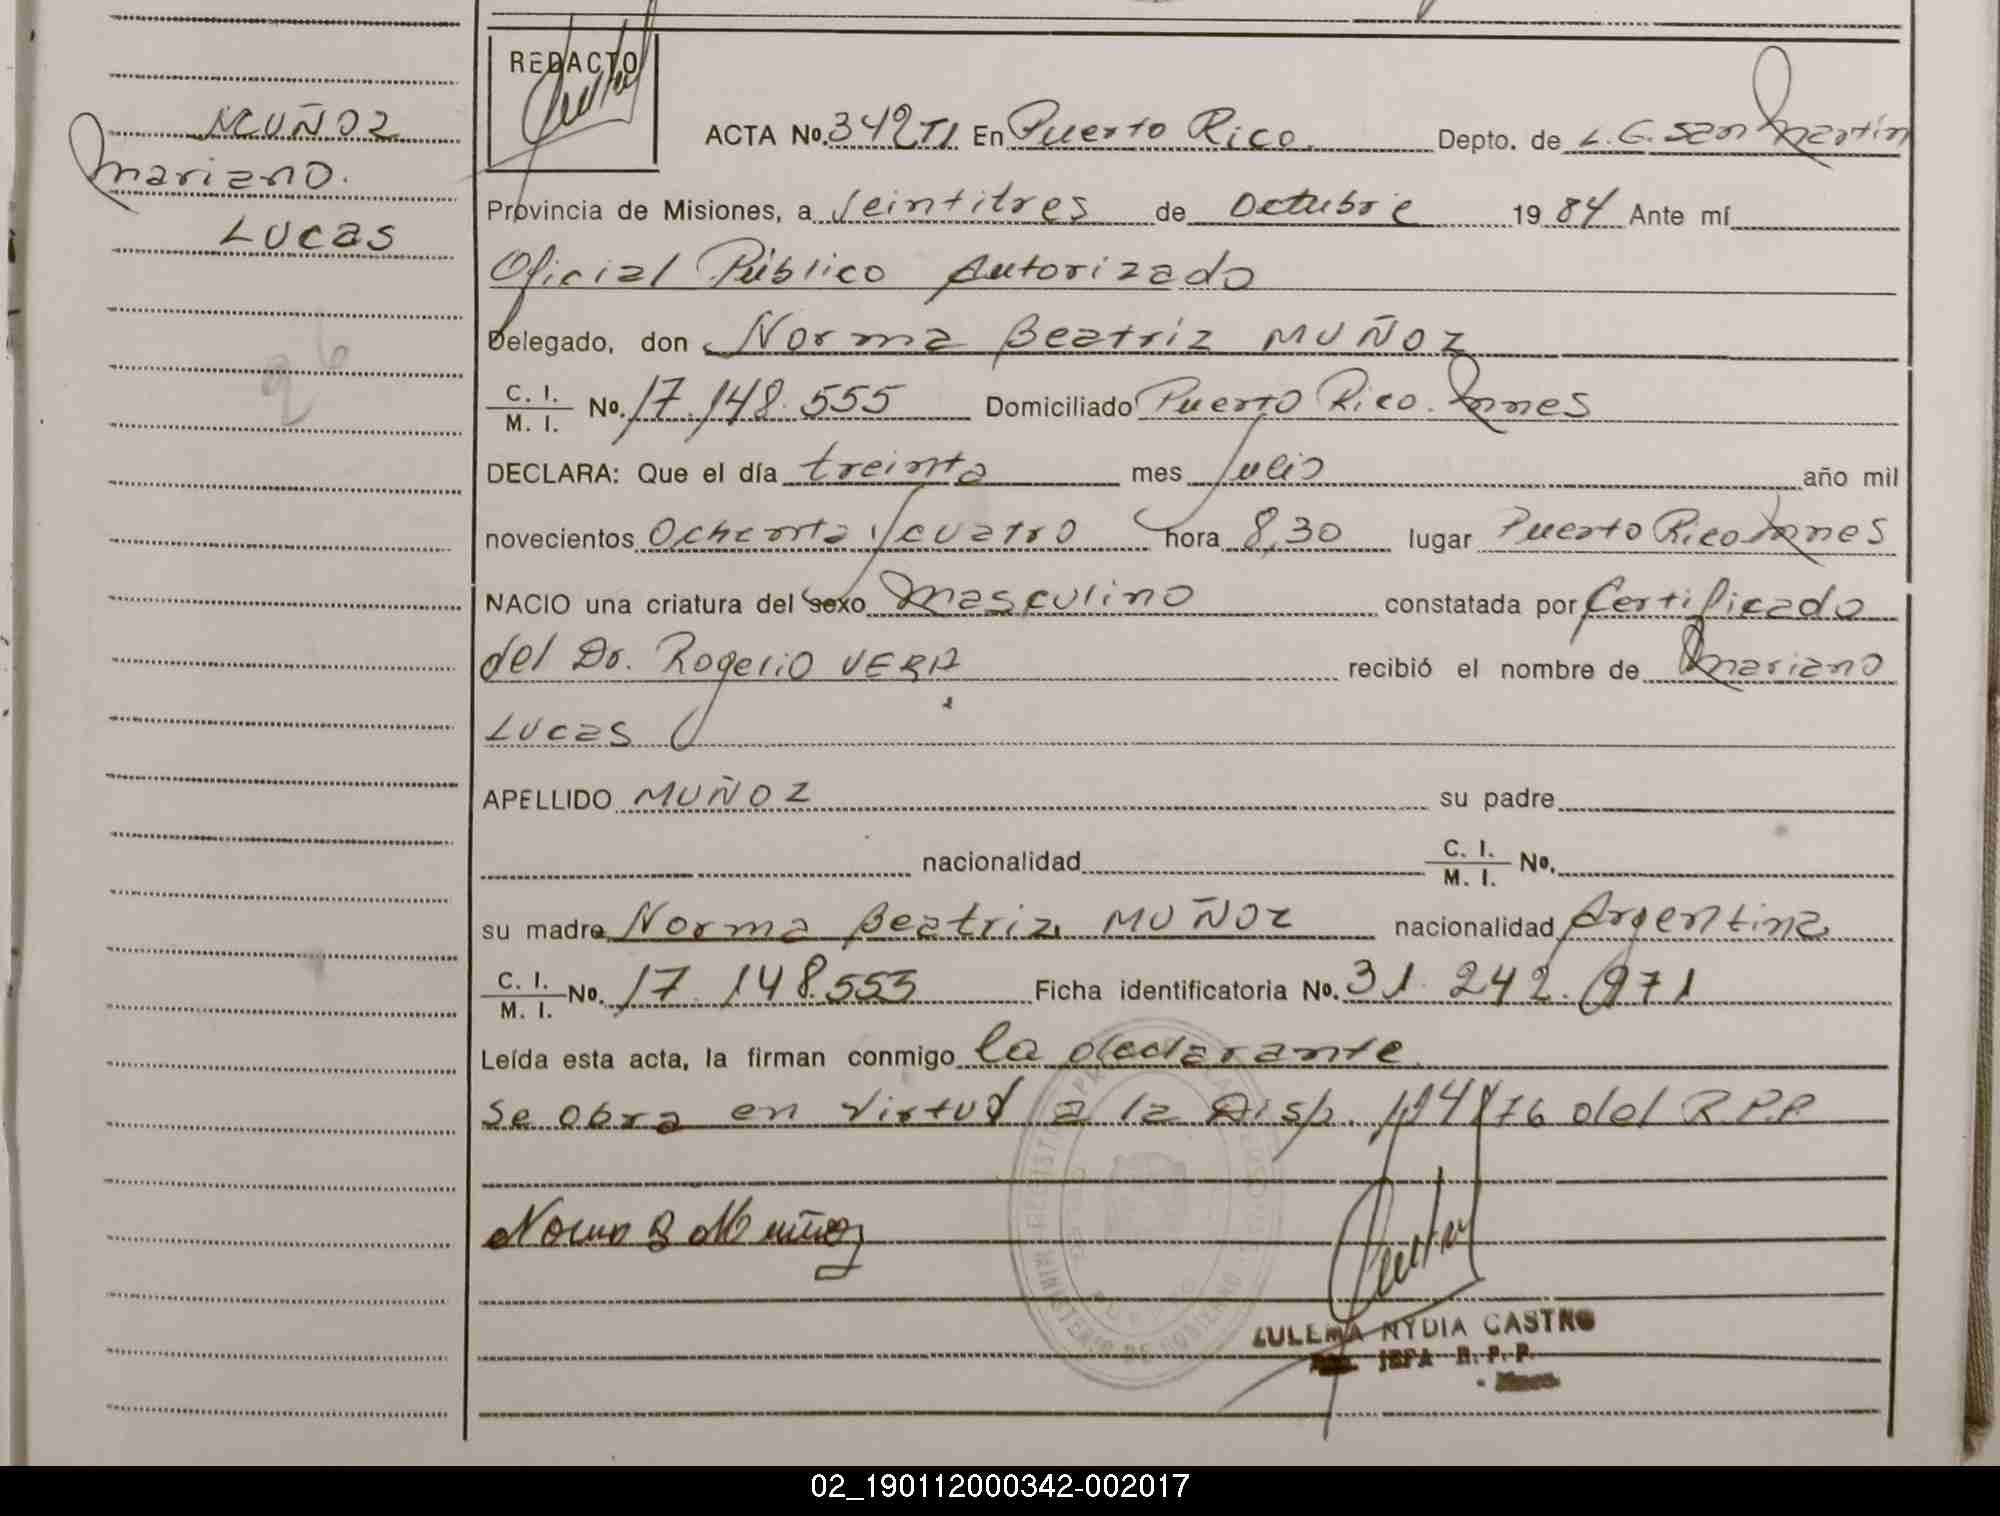 MUÑOZ
Mariano.
Lucas
26
REDACTO
ACTA No. 342 TI En Puerto Rico. Depto. de L.G. San Martín
Provincia de Misiones, a Veintitres de Octubre 1984 Ante mí
Oficial Público Autorizado
Delegado, don Norma Beatriz MUÑOZ
C. I. / M. I. No. 17.148.555 Domiciliado Puerto Rico. Mnes
DECLARA: Que el día treinta mes Julio año mil
novecientos Ochenta y cuatro hora 8,30 lugar Puerto Rico Mnes
NACIO una criatura del sexo Masculino constatada por Certificado
del Dr. Rogelio VERA recibió el nombre de Mariano
Lucas
APELLIDO MUÑOZ su padre
nacionalidad C. I. / M. I. No.
su madre Norma Beatriz MUÑOZ nacionalidad Argentina
C. I. / M. I. No. 17.148.555 Ficha identificatoria No. 31.242.971
Leída esta acta, la firman conmigo la declarante.
Se obra en Virtud a la Disp. 114/76 del R.P.P
Norma B Muñoz
ZULEMA NYDIA CASTRO
JEFA R. P. P.
02_190112000342-002017